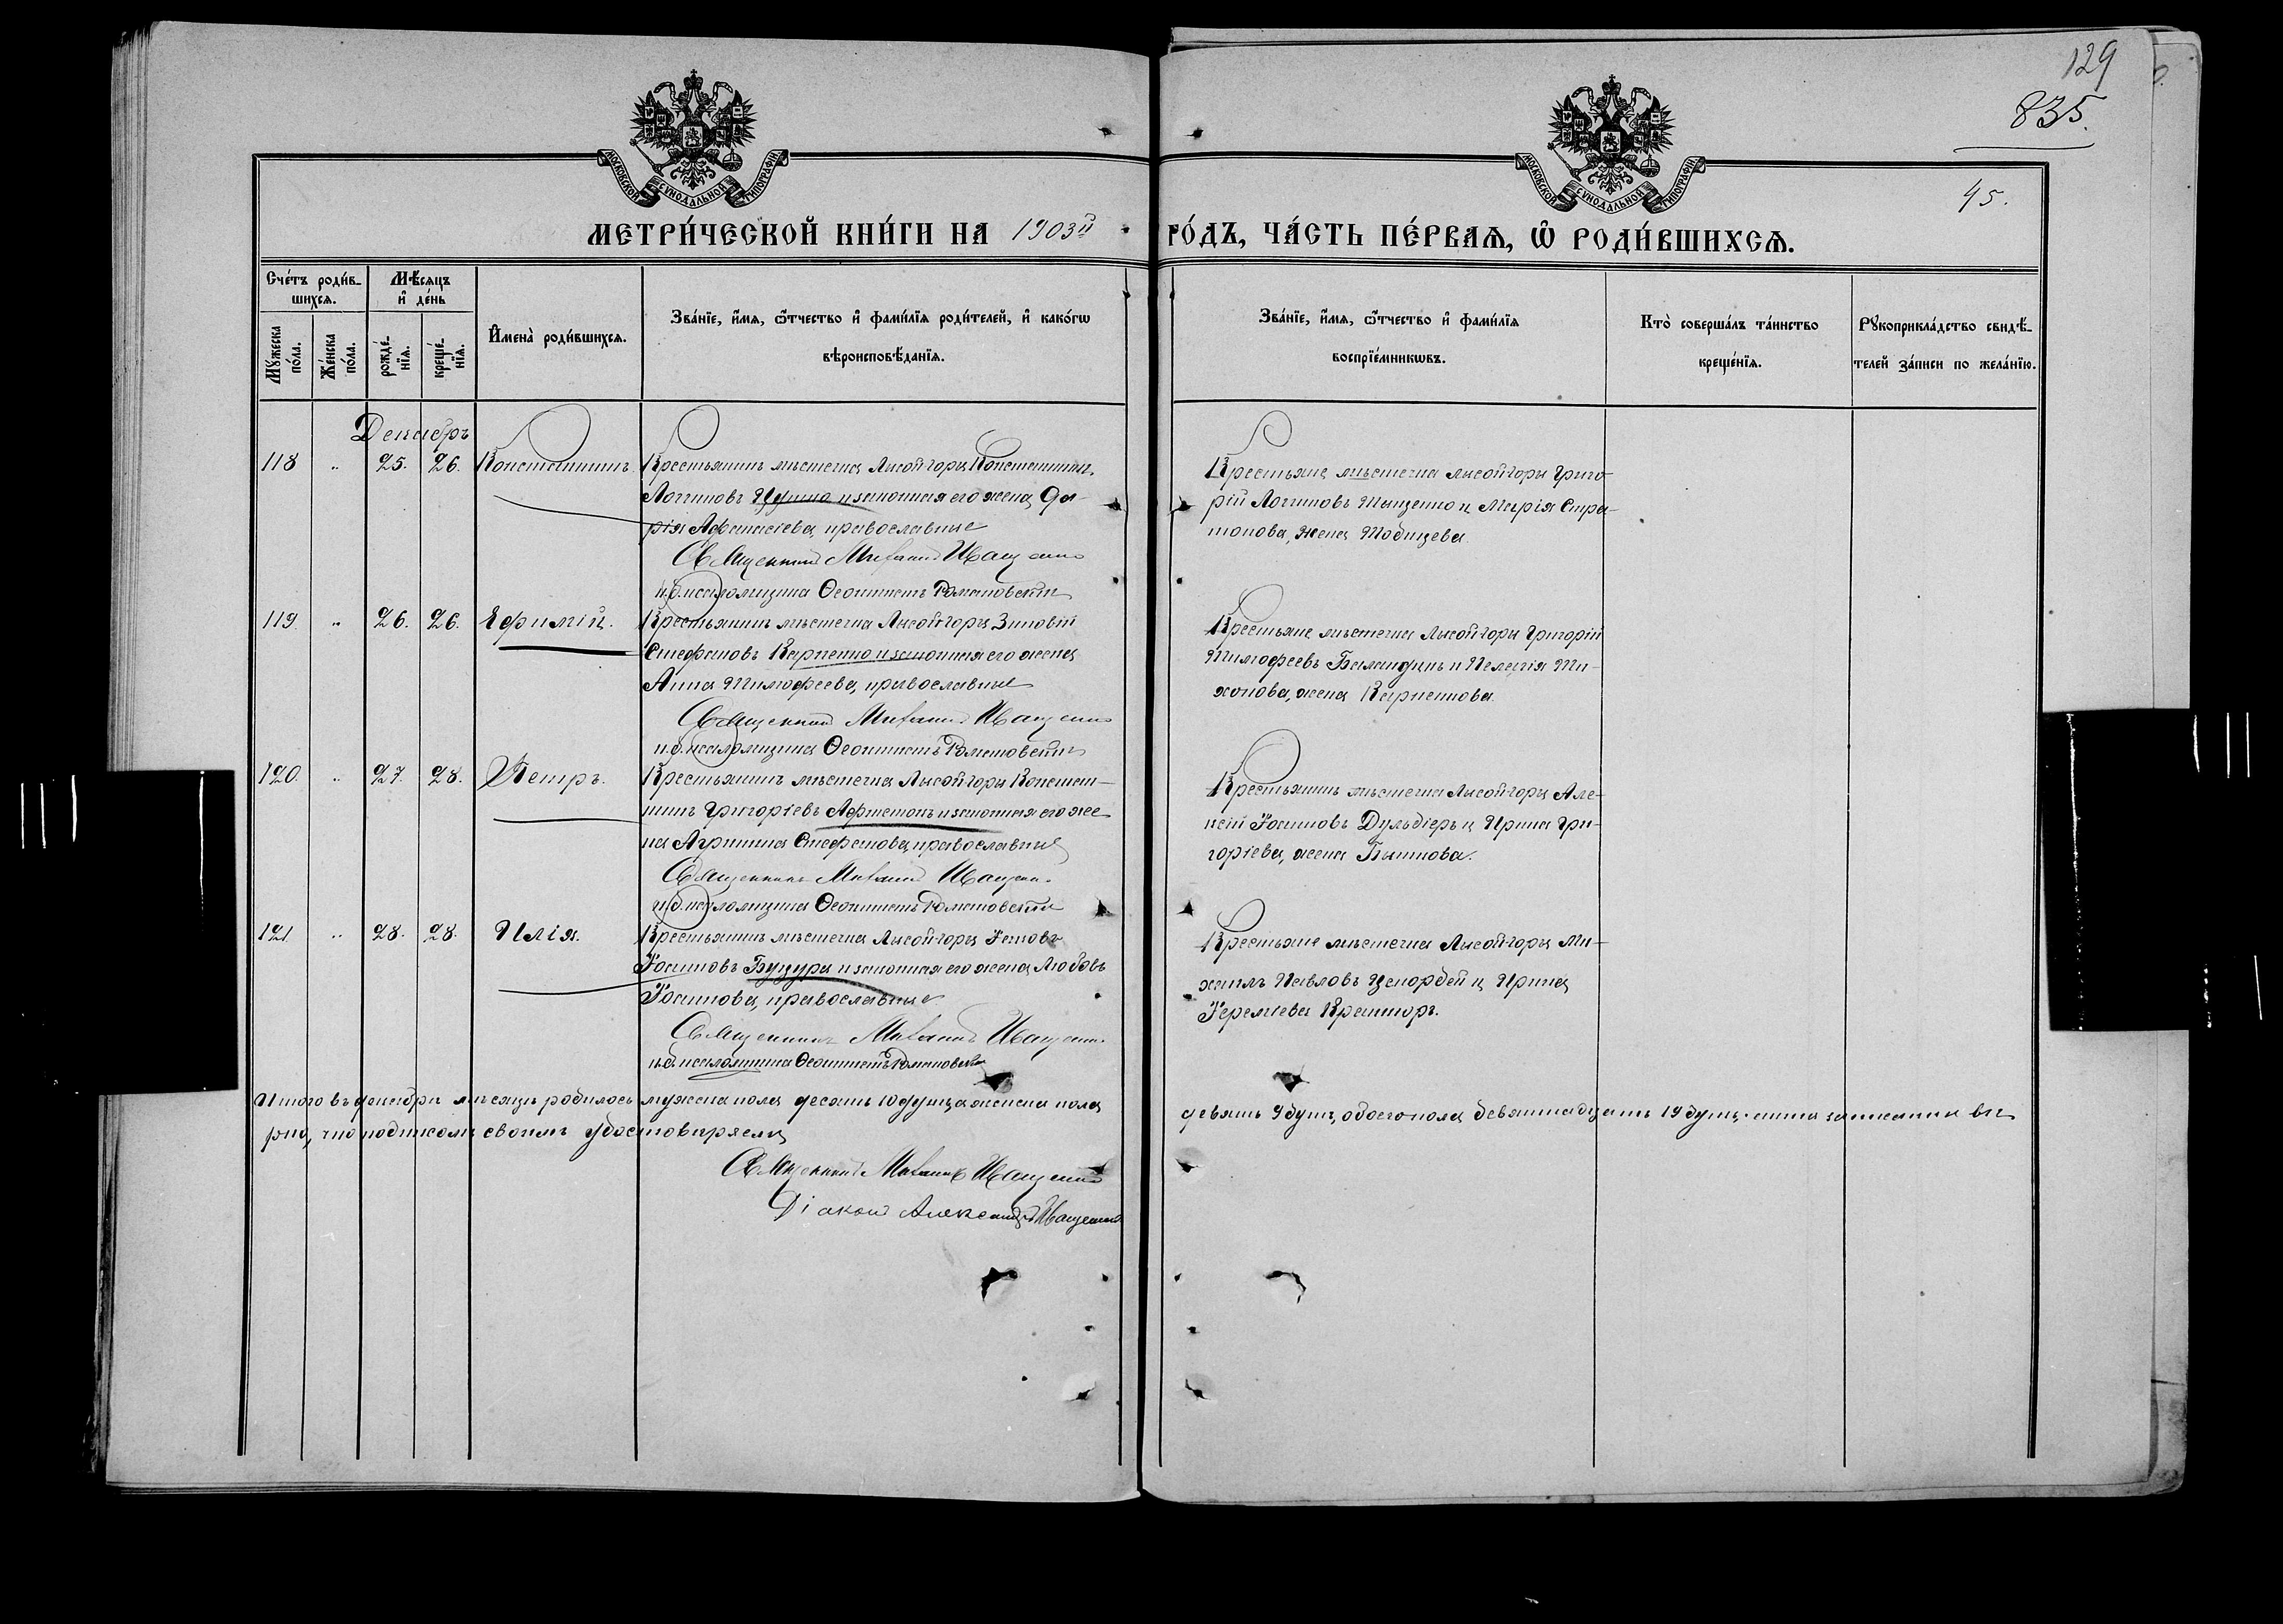 129
835.
45.
МОСКОВСКОЙ СУНОДАЛЬНОЙ ТИПОГРАФІИ
МОСКОВСКОЙ СУНОДАЛЬНОЙ ТИПОГРАФІИ
МЕТРИ́ЧЕСКОЙ КНИ́ГИ НА 1903й ГО́ДЪ, ЧА́СТЬ ПЕ́РВАѦ, Ѡ҆ РОДИ́ВШИХСѦ.
Сче́тъ роди́в-
шихсѧ.
Мѣ́сѧцъ
и҆ де́нь
Мꙋ́жеска
по́ла.
Же́нска
по́ла.
рожде́-
нїѧ.
креще́-
нїѧ.
И҆мена̀ роди́вшихсѧ.
Зва́нїе, и҆́мѧ, ѻ҆́тчество и҆ фами́лїѧ роди́телей, и҆ како́гѡ
вѣроисповѣ́данїѧ.
Зва́нїе, и҆́мѧ, ѻ҆́тчество и҆ фами́лїѧ
воспрїе́мникѡвъ.
Кто̀ соверша́лъ та́инство
креще́нїѧ.
Рꙋкоприкла́дство свидѣ́-
телей за́писи по жела́нїю.
Декабрь
118 " 25. 26. Константинъ.
Крестьянинъ мѣстечка Лысой-горы Константинъ
Логиновъ и законная его жена Да-
рія Афанасіева, православные
Священникъ Михаилъ Иващенко
и.д. псаломщика Ѳеоктистъ Романовскій
Крестьяне мѣстечка Лысой-горы Григо-
рій Логиновъ Тыщенко и Марія Стра-
тонова, жена
119. " 26. 26. Ефимій.
Крестьянинъ мѣстечка Лысой-горы Зиновій
Стефановъ Карпенко и законная его жена
Анна Тимофеева, православные
Священникъ Михаилъ Иващенко
и.д. псаломщика Ѳеоктистъ Романовскій
Крестьяне мѣстечка Лысой-горы Григорій
Тимофеевъ Баландинъ и Пелагія Ти-
хонова, жена Карпенкова.
120. " 27. 28. Петръ.
Крестьянинъ мѣстечка Лысой-горы Констан-
тинъ Григоріевъ и законная его же-
на Агрипина Стефанова, православные
Священникъ Михаилъ Иващенко
и.д. псаломщика Ѳеоктистъ Романовскій
Крестьянинъ мѣстечка Лысой-горы Але-
ксій Іоакимовъ Дульдіеръ и Ирина Гри-
горіева, жена
121 " 28. 28. Илія.
Крестьянинъ мѣстечка Лысой-горы
Іоакимовъ Буцура и законная его жена Любовь
Іоакимова, православные
Священникъ Михаилъ Иващенко
и.д. псаломщика Ѳеоктистъ Романовскій
Крестьяне мѣстечка Лысой-горы Ми-
хаилъ Павловъ и Ирина
Іереміева
Итого въ декабрѣ мѣсяцѣ родилось мужска пола десять 10 душъ, а женска пола девять 9 душъ, обоего пола девятнадцать 19 душъ. записаны вѣ-
рно, что подписомъ своимъ удостовѣряемъ
Священникъ Михаилъ Иващенко
Діаконъ Александръ Иващенко